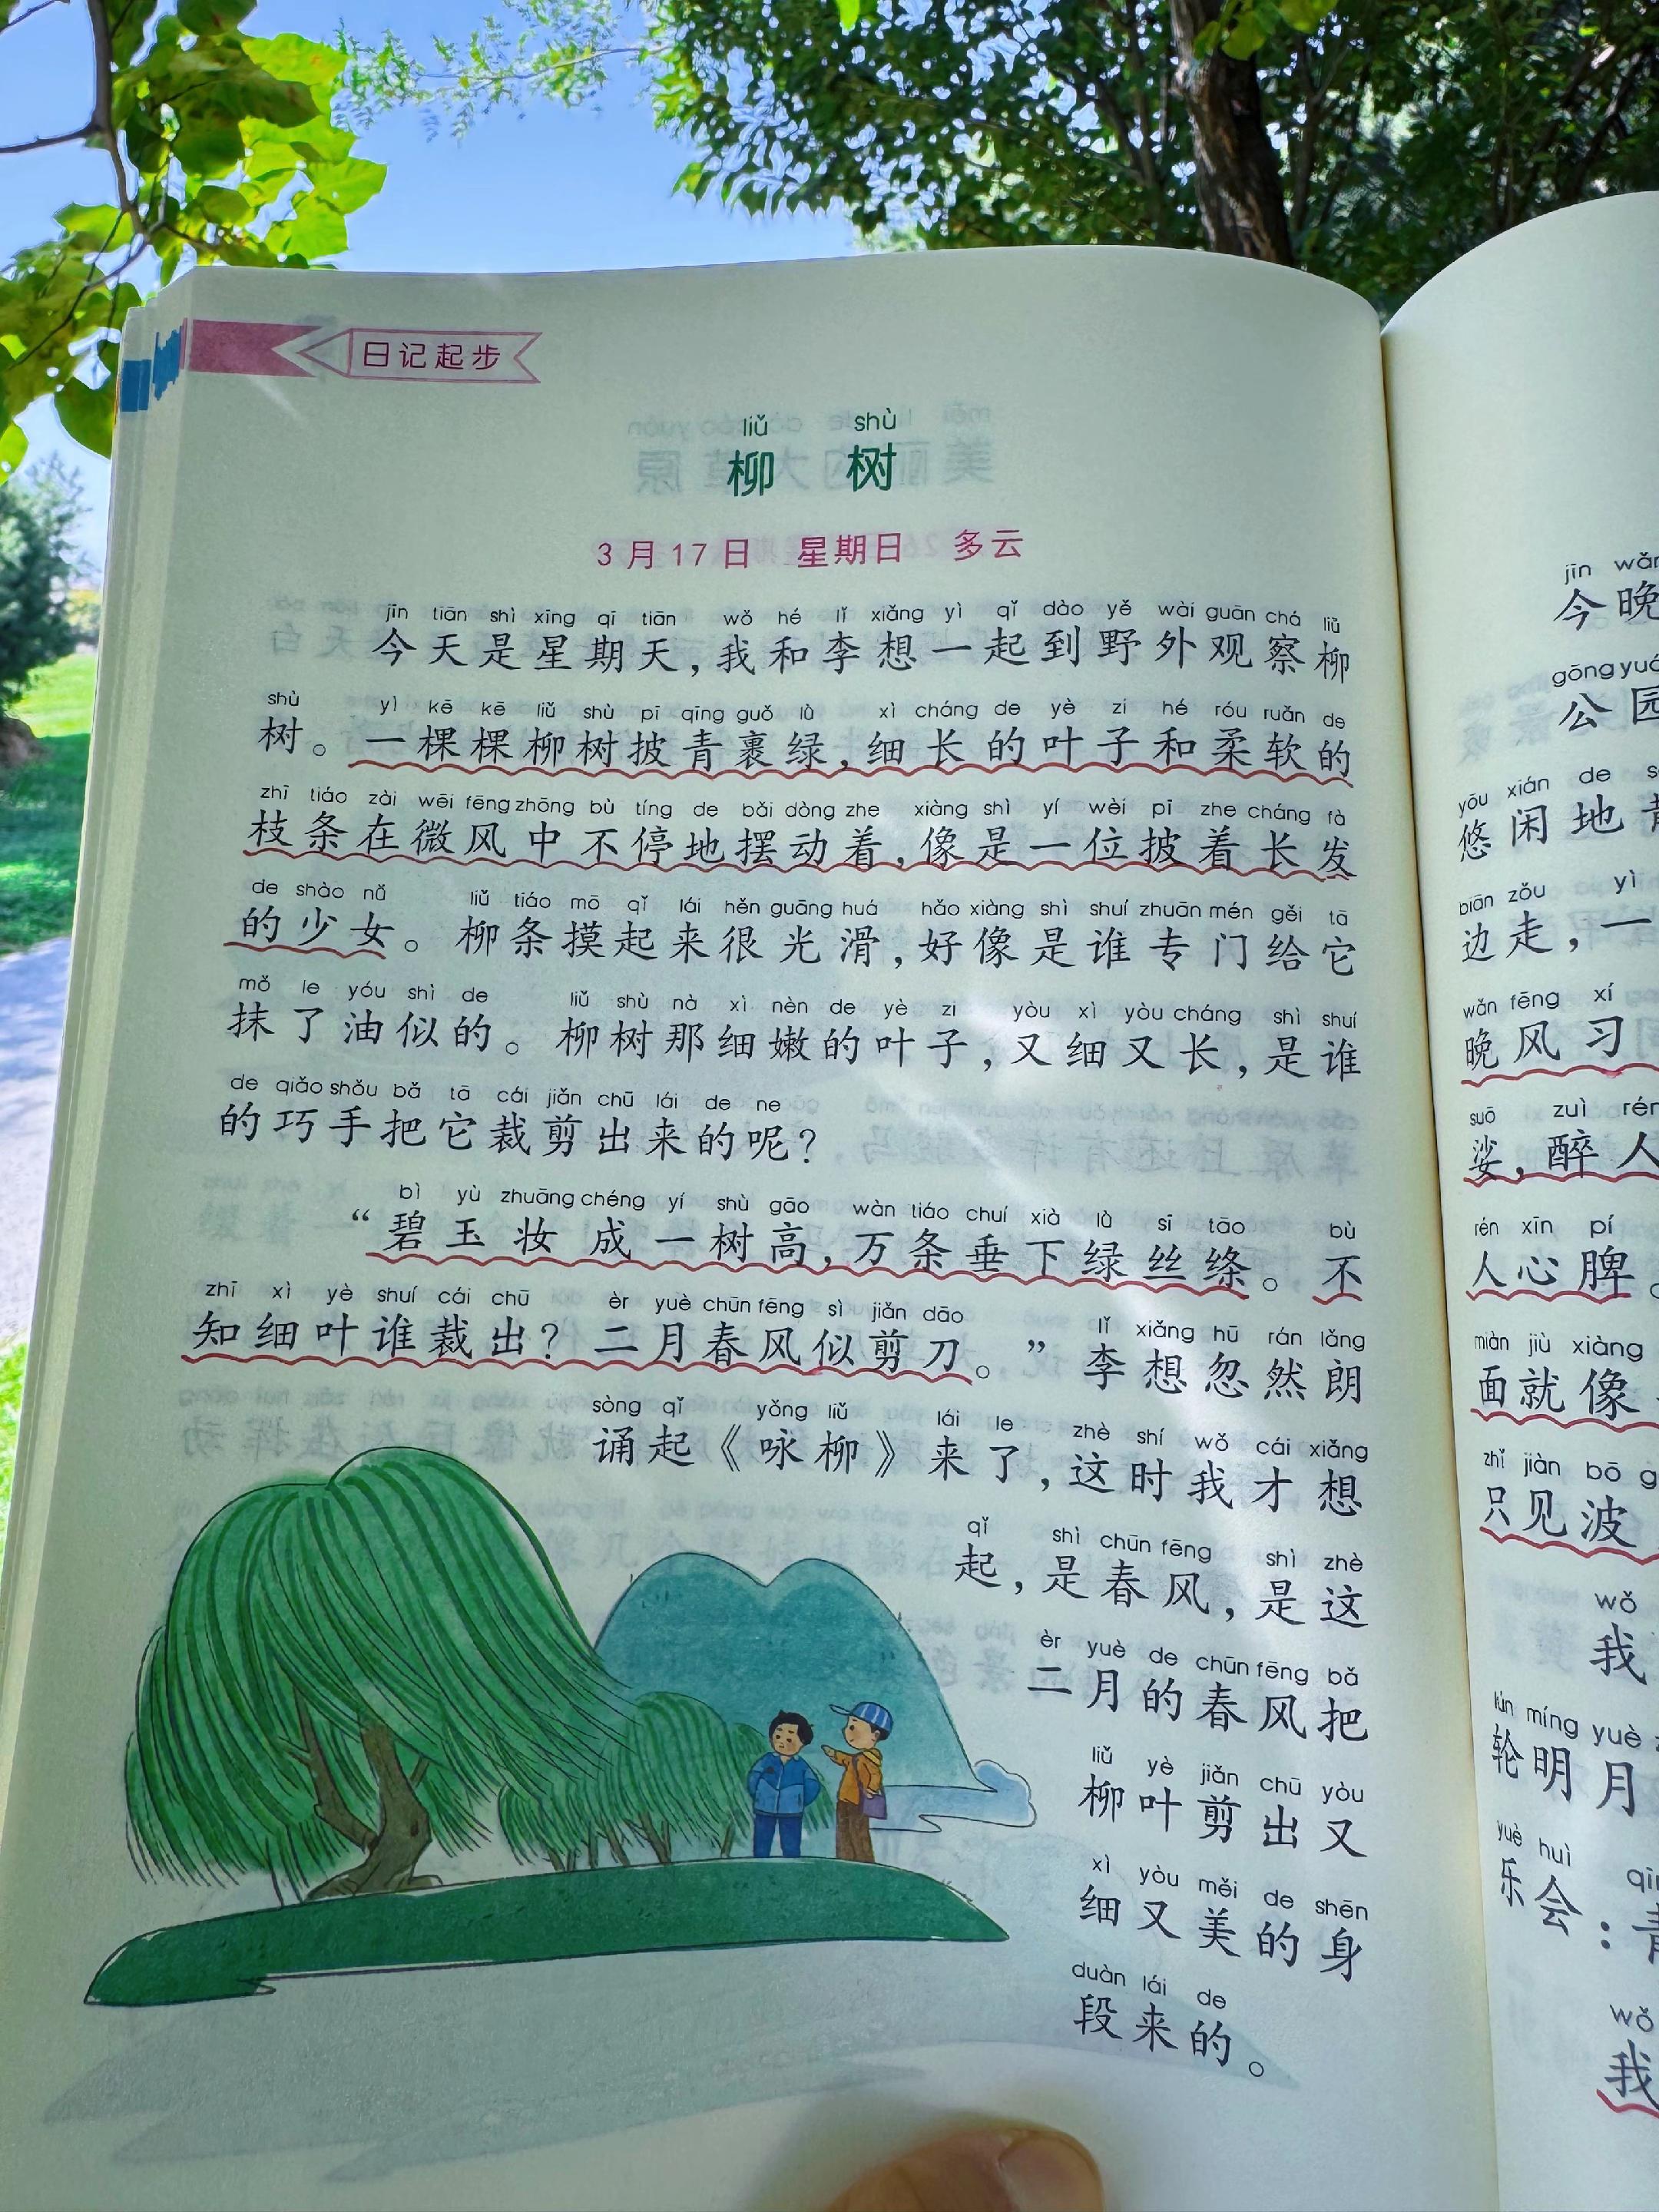 日记起步
liǔ shù
柳 树
3月17日 星期日 多云
jīn tiān shì xīng qī tiān wǒ hé lǐ xiǎng yì qǐ dào yě wài guān chá liǔ
今天是星期天，我和李想一起到野外观察柳
shù yì kē kē liǔ shù pī qīng guǒ lǜ xì cháng de yè zi hé róu ruǎn de
树。一棵棵柳树披青裹绿，细长的叶子和柔软的
zhī tiáo zài wēi fēng zhōng bù tíng de bǎi dòng zhe xiàng shì yí wèi pī zhe cháng fà
枝条在微风中不停地摆动着，像是一位披着长发
de shào nǚ liǔ tiáo mō qǐ lái hěn guāng huá hǎo xiàng shì shuí zhuān mén gěi tā
的少女。柳条摸起来很光滑，好像是谁专门给它
mǒ le yóu shì de liǔ shù nà xì nèn de yè zi yòu xì yòu cháng shì shuí
抹了油似的。柳树那细嫩的叶子，又细又长，是谁
de qiǎo shǒu bǎ tā cái jiǎn chū lái de ne
的巧手把它裁剪出来的呢？
bì yù zhuāng chéng yí shù gāo wàn tiáo chuí xià lǜ sī tāo bù
“碧玉妆成一树高，万条垂下绿丝绦。不
zhī xì yè shuí cái chū èr yuè chūn fēng sì jiǎn dāo lǐ xiǎng hū rán lǎng
知细叶谁裁出？二月春风似剪刀。”李想忽然朗
sòng qǐ yǒng liǔ lái le zhè shí wǒ cái xiǎng
诵起《咏柳》来了，这时我才想
qǐ shì chūn fēng shì zhè
起，是春风，是这
èr yuè de chūn fēng bǎ
二月的春风把
liǔ yè jiǎn chū yòu
柳叶剪出又
xì yòu měi de shēn
细又美的身
duàn lái de
段来的。
jīn wǎn
今晚
gōng yuán
公园
yōu xián de
悠闲地
biān zǒu yì
边走，一
wǎn fēng xí
晚风习
suō zuì rén
娑，醉人
rén xīn pí
人心脾。
miàn jiù xiàng
面就像
zhǐ jiàn bō
只见波
wǒ
我
lún míng yuè
轮明月
yuè huì
乐会：
wǒ
我